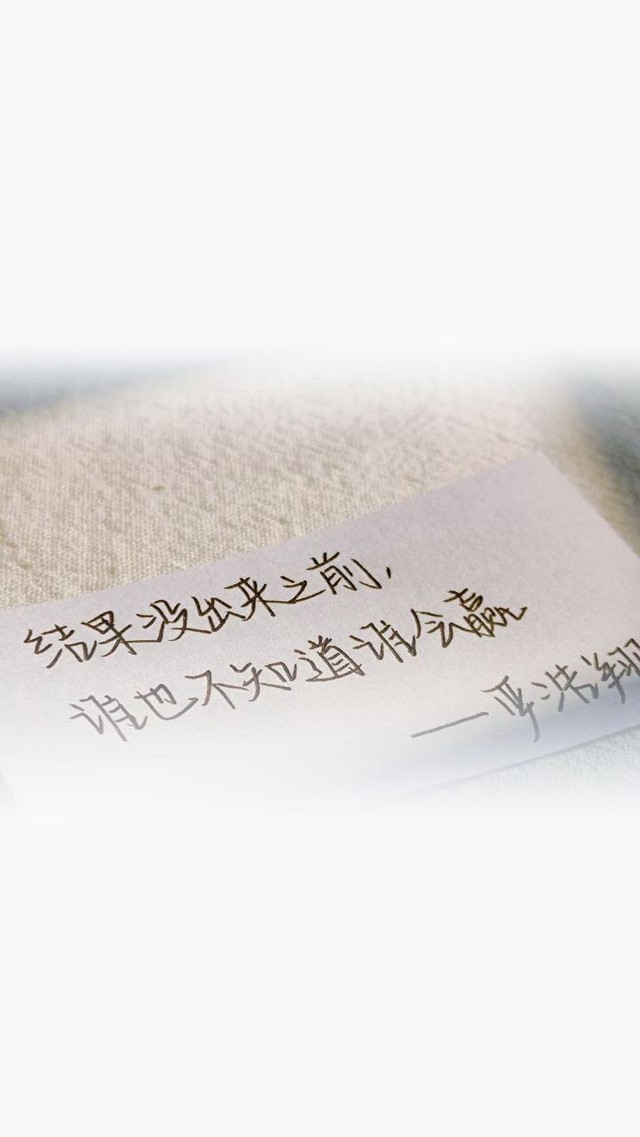 结果没出来之前,
谁也不知道谁会赢
——严浩翔